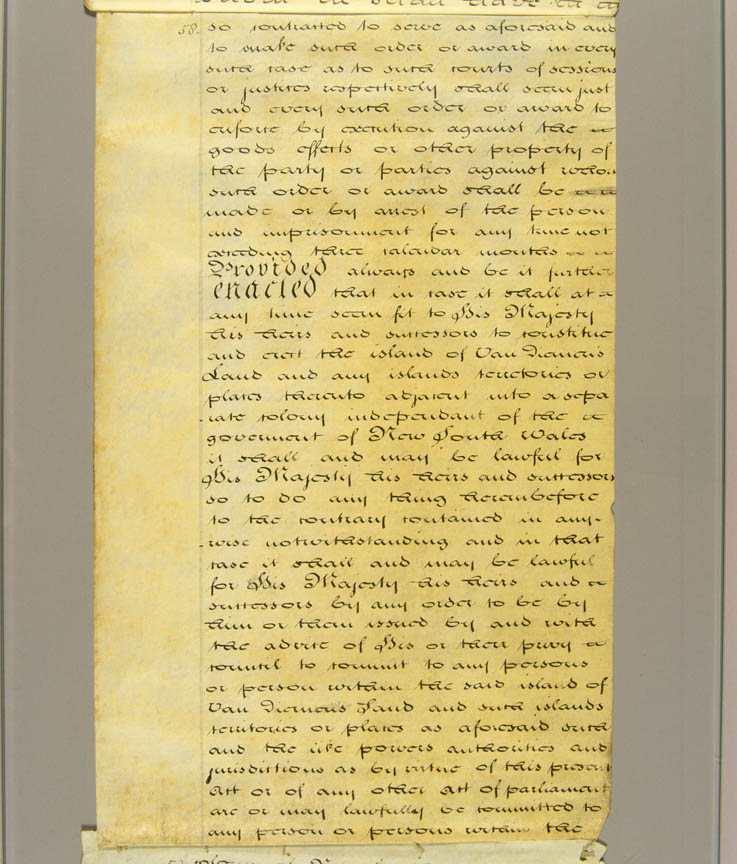 58. so contracted to serve as aforesaid and
to make such order or award in every
such case as to such courts of sessions
or justices respectively shall seem just
and every such order or award to
enforce by execution against the
goods effects or other property of
the party or parties against whom
such order or award shall be
made or by arrest of the person
and imprisonment for any time not
exceeding three calendar months
Provided always and be it further
enacted that in case it shall at
any time seem fit to His Majesty
his heirs and successors to constitute
and erect the island of Van Diemen's
Land and any islands territories or
places thereunto adjacent into a sepa
rate colony independant of the
goverment of New South Wales
it shall and may be lawful for
His Majesty his heirs and successors
so to do any thing hereinbefore
to the contrary contained in any-
wise notwithstanding and in that
case it shall and may be lawful
for His Majesty his heirs and
successors by any order to be by
him or them issued by and with
the advice of His or their privy
council to commit to any persons
or person within the said island of
Van Diemen's Land and such islands
territories or places as aforesaid such
and the like powers authorities and
jurisdictions as by virtue of this present
Act or of any other Act of parliament
are or may lawfully be committed to
any person or persons within the